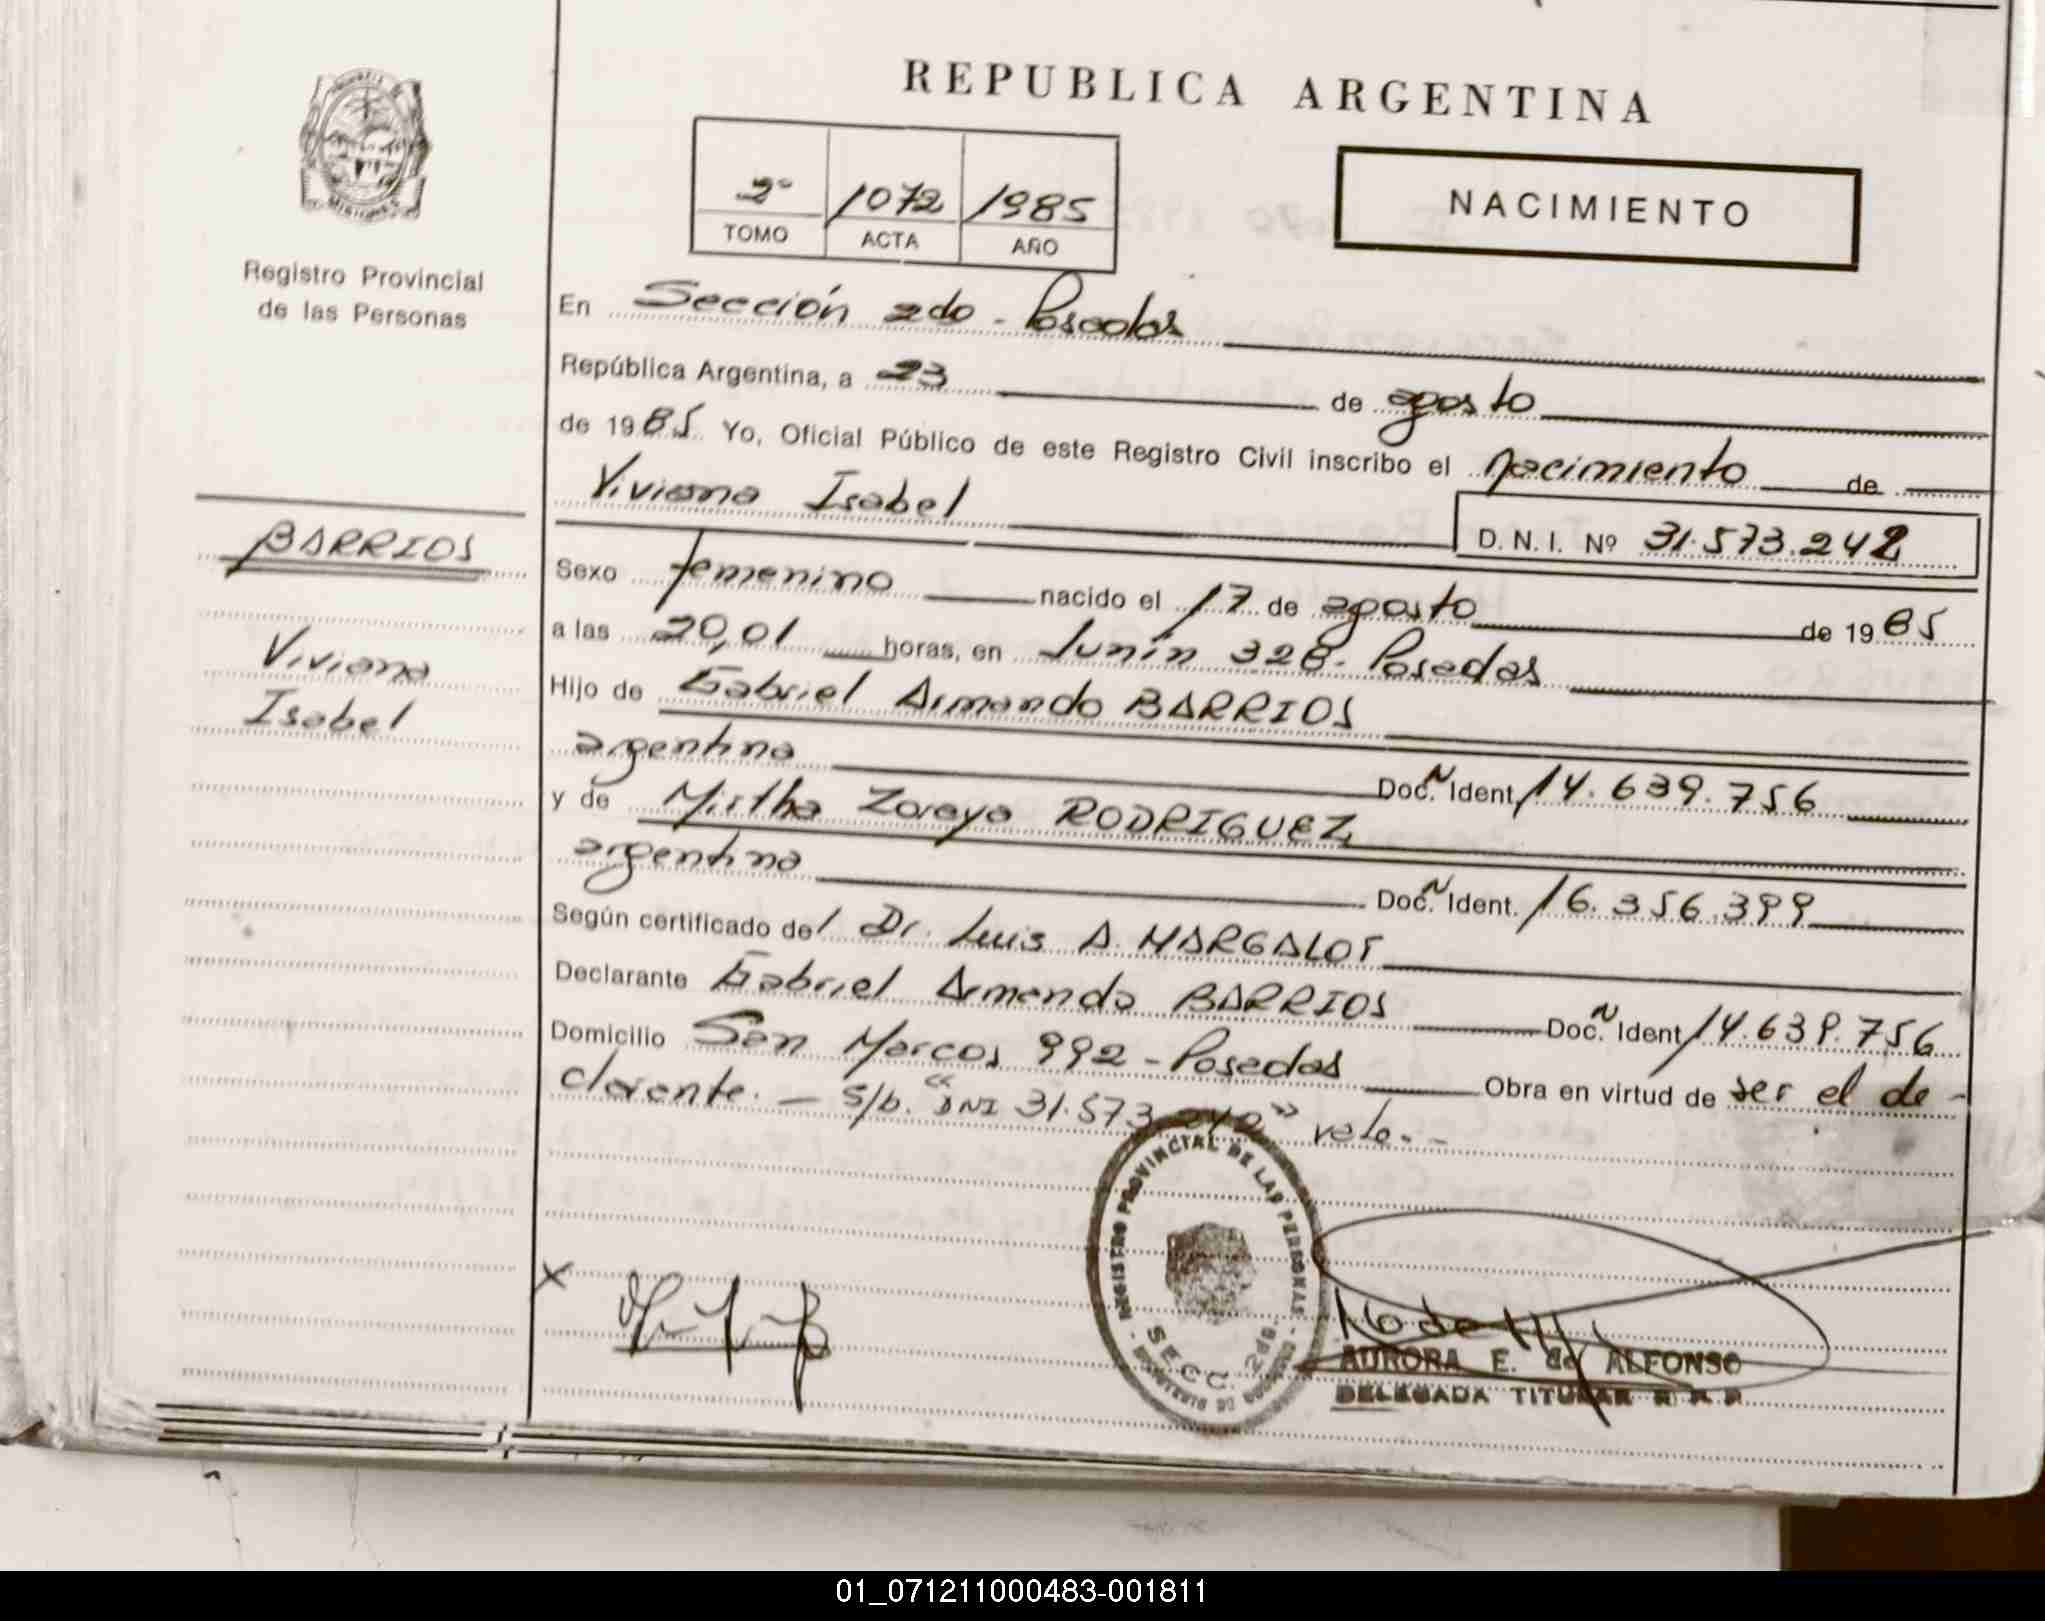 REPUBLICA ARGENTINA
MISIONES
Registro Provincial
de las Personas
2º 1072 1985
TOMO ACTA AÑO
NACIMIENTO
En Sección 2do - Posadas
República Argentina, a 23 de agosto
de 1985 Yo, Oficial Público de este Registro Civil inscribo el nacimiento de
Viviana Isabel
D. N. I. Nº 31.573.242
BARRIOS
Viviana
Isabel
Sexo femenino nacido el 17 de agosto de 1985
a las 20,01 horas, en Junín 328 - Posadas
Hijo de Gabriel Armando BARRIOS
argentina Doc. N Ident. 14.639.756
y de Mirtha Zoraya RODRIGUEZ
argentina Doc. N Ident. 16.356.399
Según certificado del Dr. Luis A. MARGALOT
Declarante Gabriel Armando BARRIOS Doc. N Ident. 14.639.756
Domicilio San Marcos 992 - Posadas Obra en virtud de ser el de-
clarante. — s/b. "DNI 31.573.242" vale. -
REGISTRO PROVINCIAL DE LAS PERSONAS
SECC. 2da
X
AURORA E. de ALFONSO
DELEGADA TITULAR R. P. P.
01_071211000483-001811